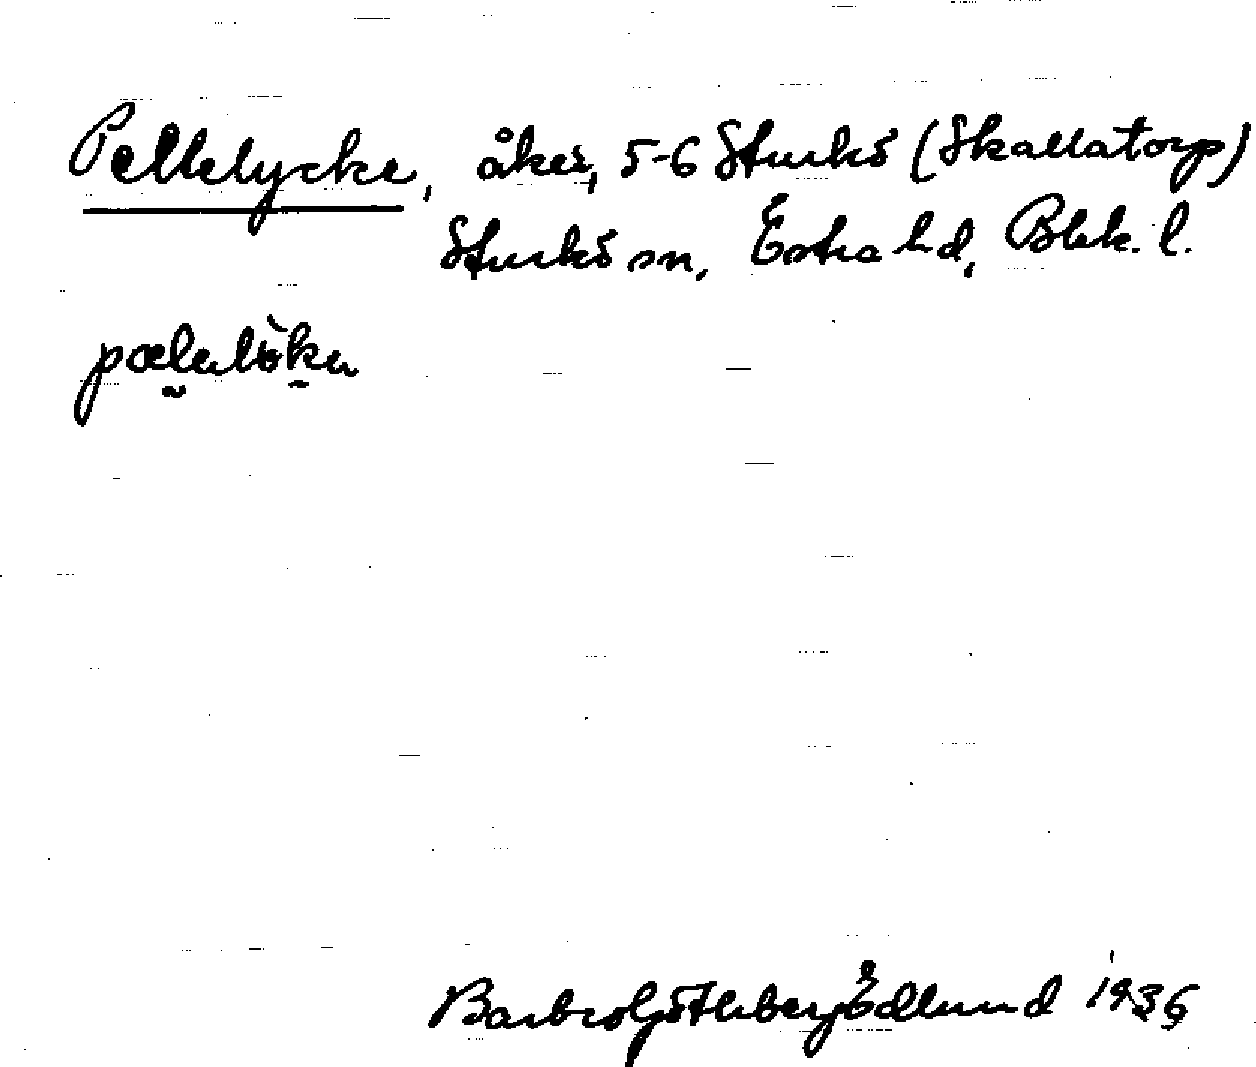 Pellelycke, åker, 5-6 Sturkö (Skallatorp)
Sturkö sn, Östra hd, Blek. l.
pælalöka
Barbro Göthberg Edlund 1936